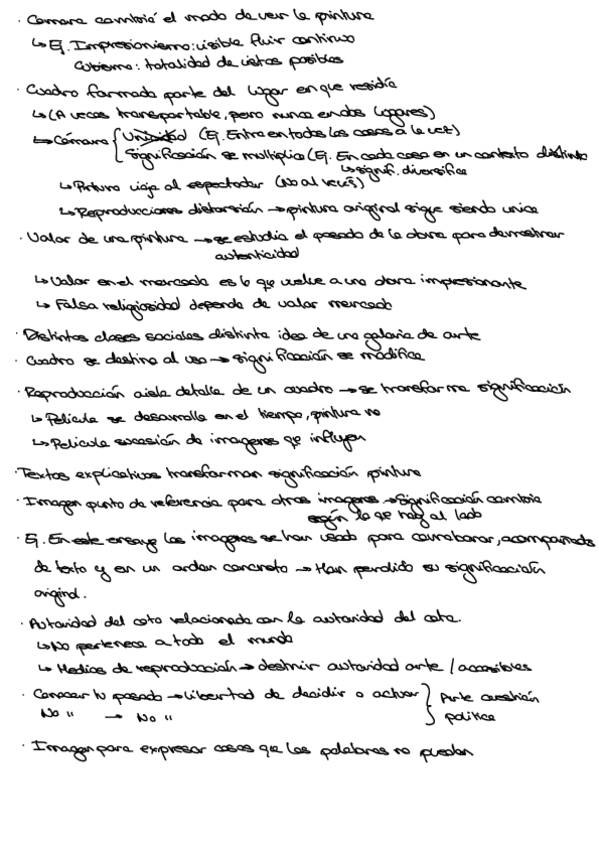 · Camara cambió el modo de ver la pintura
↳ Ej. Impresionismo: visible fluir continuo
Cubismo: totalidad de vistas posibles
· Cuadro formada parte del lugar en que residía
↳ (A veces transportable, pero nunca en dos lugares)
↳ Cámara { Unicidad (Ej. Entra en todas las casas a la vez)
Significación se multiplica (Ej. En cada casa en un contexto distinto
↳ signif. diversifica
↳ Pintura viaja al espectador (No al revés)
↳ Reproducciones distorsión → pintura original sigue siendo unica
· Valor de una pintura → se estudia el pasado de la obra para demostrar
autenticidad
↳ Valor en el mercado es lo q̃ vuelve a una obra impresionante
↳ Falsa religiosidad depende de valor mercado
· Distintas clases sociales distinta idea de una galería de arte
· Cuadro se destina al uso → significación se modifica
· Reproducción aisla detalle de un cuadro → se transforma significación
↳ Pelicula se desarrolla en el tiempo, pintura no
↳ Pelicula sucesión de imagenes q̃ influyen
· Textos explicativos transforman significación pintura
· Imagen punto de referencia para otras imagenes → Significación cambia
según lo q̃ hay al lado
· Ej. En este ensayo las imagenes se han usado para corroborar, acompañada
de texto y en un orden concreto → Han perdido su significación
original.
· Autoridad del coto relacionada con la autoridad del coto.
↳ No pertenece a todo el mundo
↳ Medios de reproducción → destruir autoridad arte / accesibles
· Conocer tu pasado → Libertad de decidir o actuar } Arte cuestión
No " → No " política
· Imagen para expresar cosas que las palabras no pueden